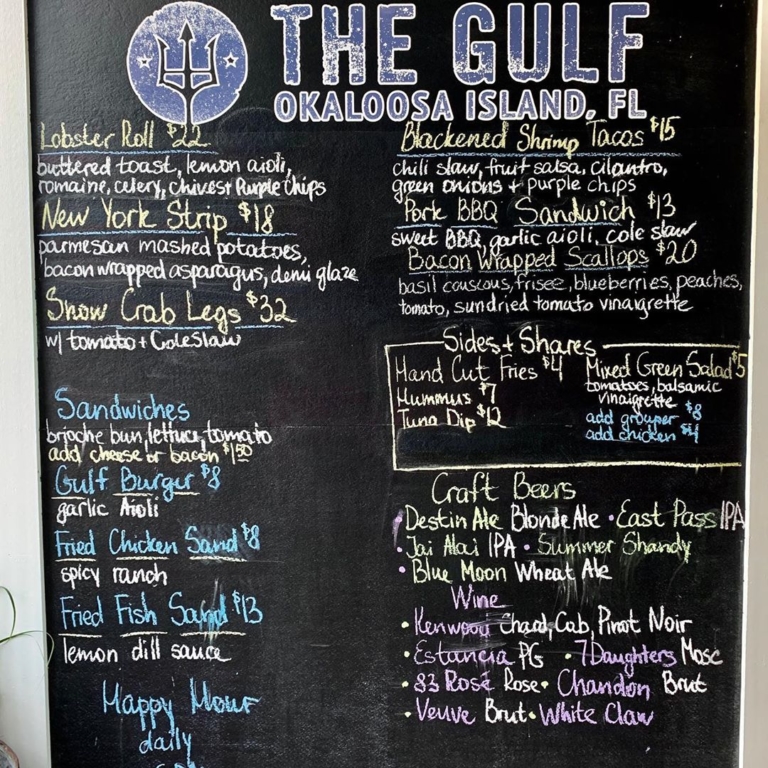 THE GULF
OKALOOSA ISLAND, FL
Lobster Roll $22
buttered toast, lemon aioli,
romaine, celery, chives+ Purple Chips
New York Strip $18
parmesan mashed potatoes,
bacon wrapped asparagus, demi glaze
Snow Crab Legs $32
w/ tomato + Coleslaw
Sandwiches
brioche bun, lettuce, tomato
add cheese or bacon $1.50
Gulf Burger $8
garlic Aioli
Fried Chicken Sand $8
spicy ranch
Fried Fish Sand $13
lemon dill sauce
Happy Hour
daily
Blackened Shrimp Tacos $15
chili slaw, fruit salsa, cilantro,
green onions + purple chips
Pork BBQ Sandwich $13
sweet BBQ, garlic aioli, cole slaw
Bacon Wrapped Scallops $20
basil couscous, frisee, blueberries, peaches,
tomato, sundried tomato vinaigrette
Sides + Shares
Hand Cut Fries $4
Hummus $7
Tuna Dip $12
Mixed Green Salad $5
tomatoes, balsamic
vinaigrette
add grouper $8
add chicken $4
Craft Beers
• Destin Ale Blonde Ale • East Pass IPA
• Jai Alai IPA • Summer Shandy
• Blue Moon Wheat Ale
Wine
• Kenwood Chard, Cab, Pinot Noir
• Estancia PG • 7 Daughters Mosc
• 83 Rosé Rose • Chandon Brut
• Veuve Brut • White Claw